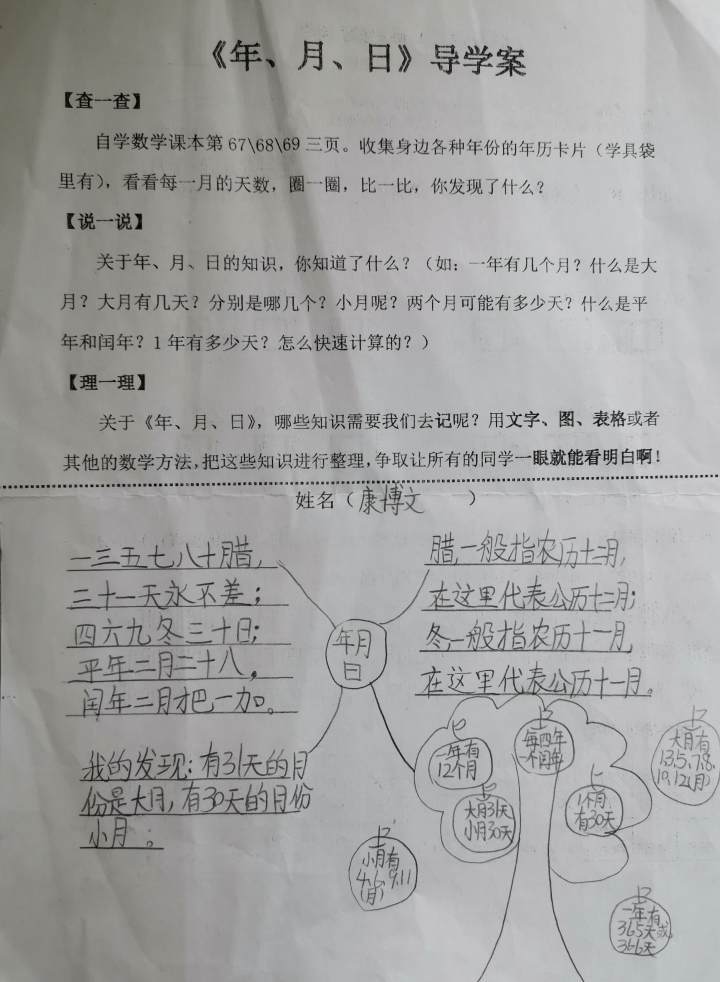 《年、月、日》导学案
【查一查】
自学数学课本第 67\68\69 三页。收集身边各种年份的年历卡片（学具袋
里有），看看每一月的天数，圈一圈，比一比，你发现了什么？
【说一说】
关于年、月、日的知识，你知道了什么？（如：一年有几个月？什么是大
月？大月有几天？分别是哪几个？小月呢？两个月可能有多少天？什么是平
年和闰年？1 年有多少天？怎么快速计算的？）
【理一理】
关于《年、月、日》，哪些知识需要我们去记呢？用文字、图、表格或者
其他的数学方法，把这些知识进行整理，争取让所有的同学一眼就能看明白啊！
姓名（康博文）
一三五七八十腊，
三十一天永不差；
四六九冬三十日；
平年二月二十八，
闰年二月把一加。
年月
日
腊，一般指农历十二月，
在这里代表公历十二月；
冬，一般指农历十一月，
在这里代表公历十一月。
我的发现：有31天的月
份是大月，有30天的月份
小月。
一年有
12个月
每四年
一闰年
大月有
1.3.5.7.8.
10.12(月)
大月31天
小月30天
1个月
有30天
小月有
4.6.9.11
(月)
一年有
365天或
366天